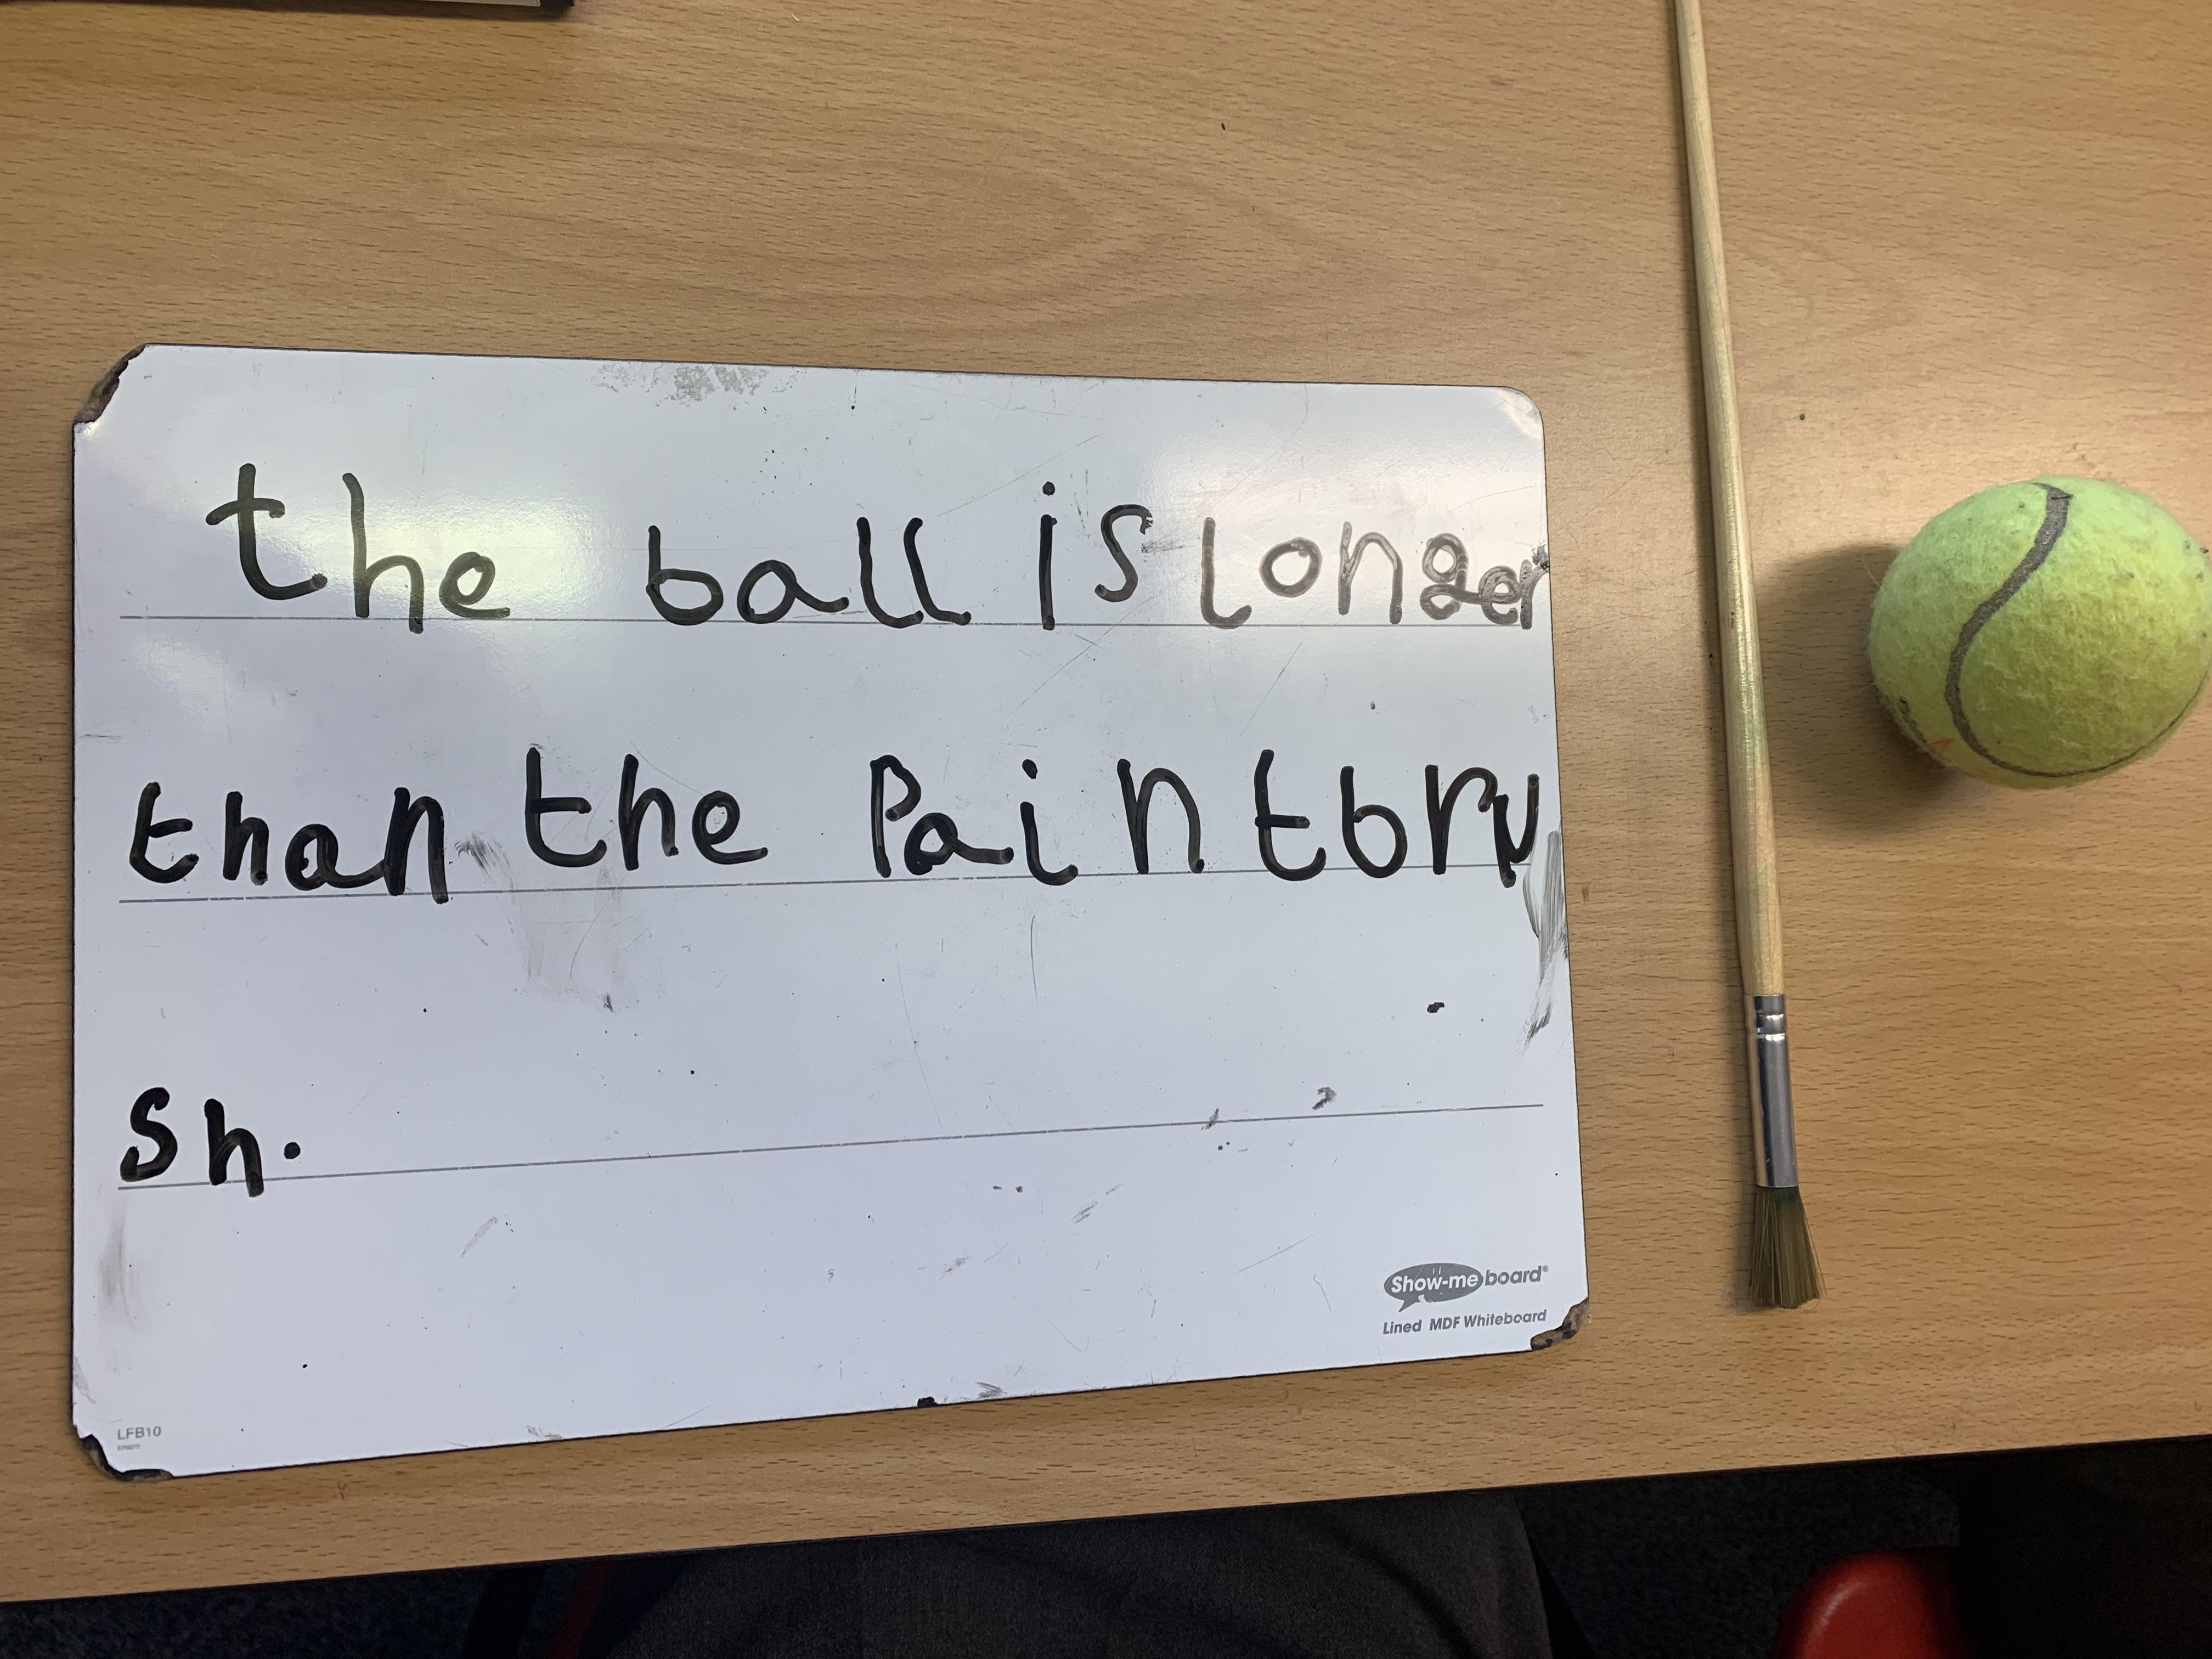 the ball is longer
than the Paintbru
sh.
Show-me board®
Lined MDF Whiteboard
LFB10